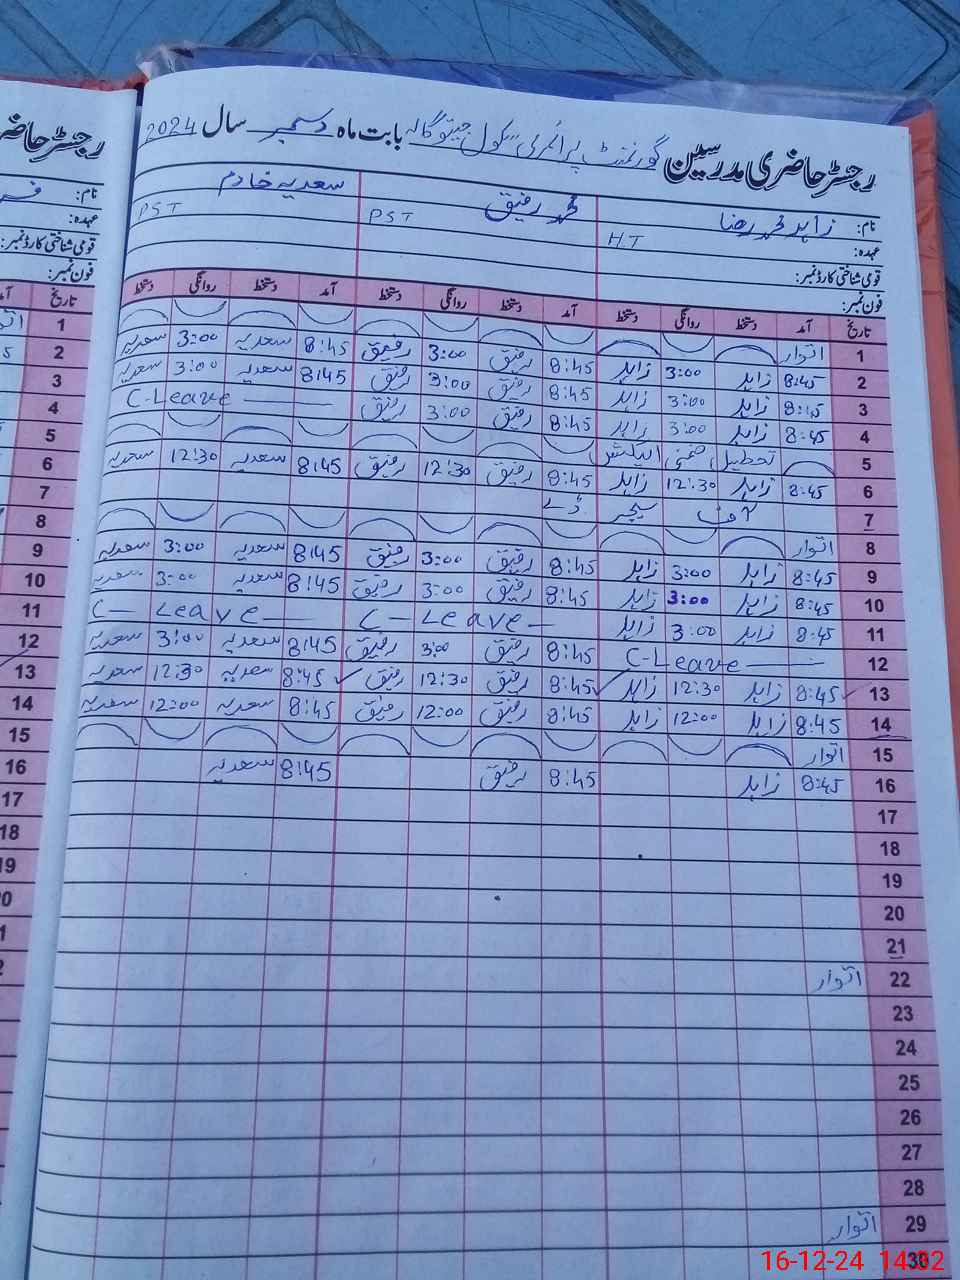 رجسٹر حاضری مدرسین گورنمنٹ پرائمری سکول بابت ماہ دسمبر سال 2024
نام: زاہد محمد رضا محمد رفیق سعدیہ خادم
عہدہ: H.T PST PST
قومی شناختی کارڈ نمبر:
فون نمبر:
تاریخ آمد دستخط روانگی دستخط آمد دستخط روانگی دستخط آمد دستخط روانگی دستخط
1 اتوار
2 8:45 زاہد 3:00 زاہد 8:45 رفیق 3:00 رفیق 8:45 سعدیہ 3:00 سعدیہ
3 8:45 زاہد 3:00 زاہد 8:45 رفیق 3:00 رفیق 8:45 سعدیہ 3:00 سعدیہ
4 8:45 زاہد 3:00 زاہد 8:45 رفیق 3:00 رفیق C-Leave
5 تعطیل ضمنی الیکشن
6 8:45 زاہد 12:30 زاہد 8:45 رفیق 12:30 رفیق 8:45 سعدیہ 12:30 سعدیہ
7 آف سیچر ڈے
8 اتوار
9 8:45 زاہد 3:00 زاہد 8:45 رفیق 3:00 رفیق 8:45 سعدیہ 3:00 سعدیہ
10 8:45 زاہد 3:00 زاہد 8:45 رفیق 3:00 رفیق 8:45 سعدیہ 3:00 سعدیہ
11 8:45 زاہد 3:00 زاہد C-Leave C-Leave
12 C-Leave 8:45 رفیق 3:00 رفیق 8:45 سعدیہ 3:00 سعدیہ
13 8:45 زاہد 12:30 زاہد 8:45 رفیق 12:30 رفیق 8:45 سعدیہ 12:30 سعدیہ
14 8:45 زاہد 12:00 زاہد 8:45 رفیق 12:00 رفیق 8:45 سعدیہ 12:00 سعدیہ
15 اتوار
16 8:45 زاہد 8:45 رفیق 8:45 سعدیہ
17
18
19
20
21
22 اتوار
23
24
25
26
27
28
29 اتوار
30
رجسٹر حاضر
نام:
عہدہ:
قومی شناختی کارڈ نمبر:
فون نمبر:
تاریخ
1
2
3
4
5
6
7
8
9
10
11
12
13
14
15
16
17
18
19
16-12-24 14:02